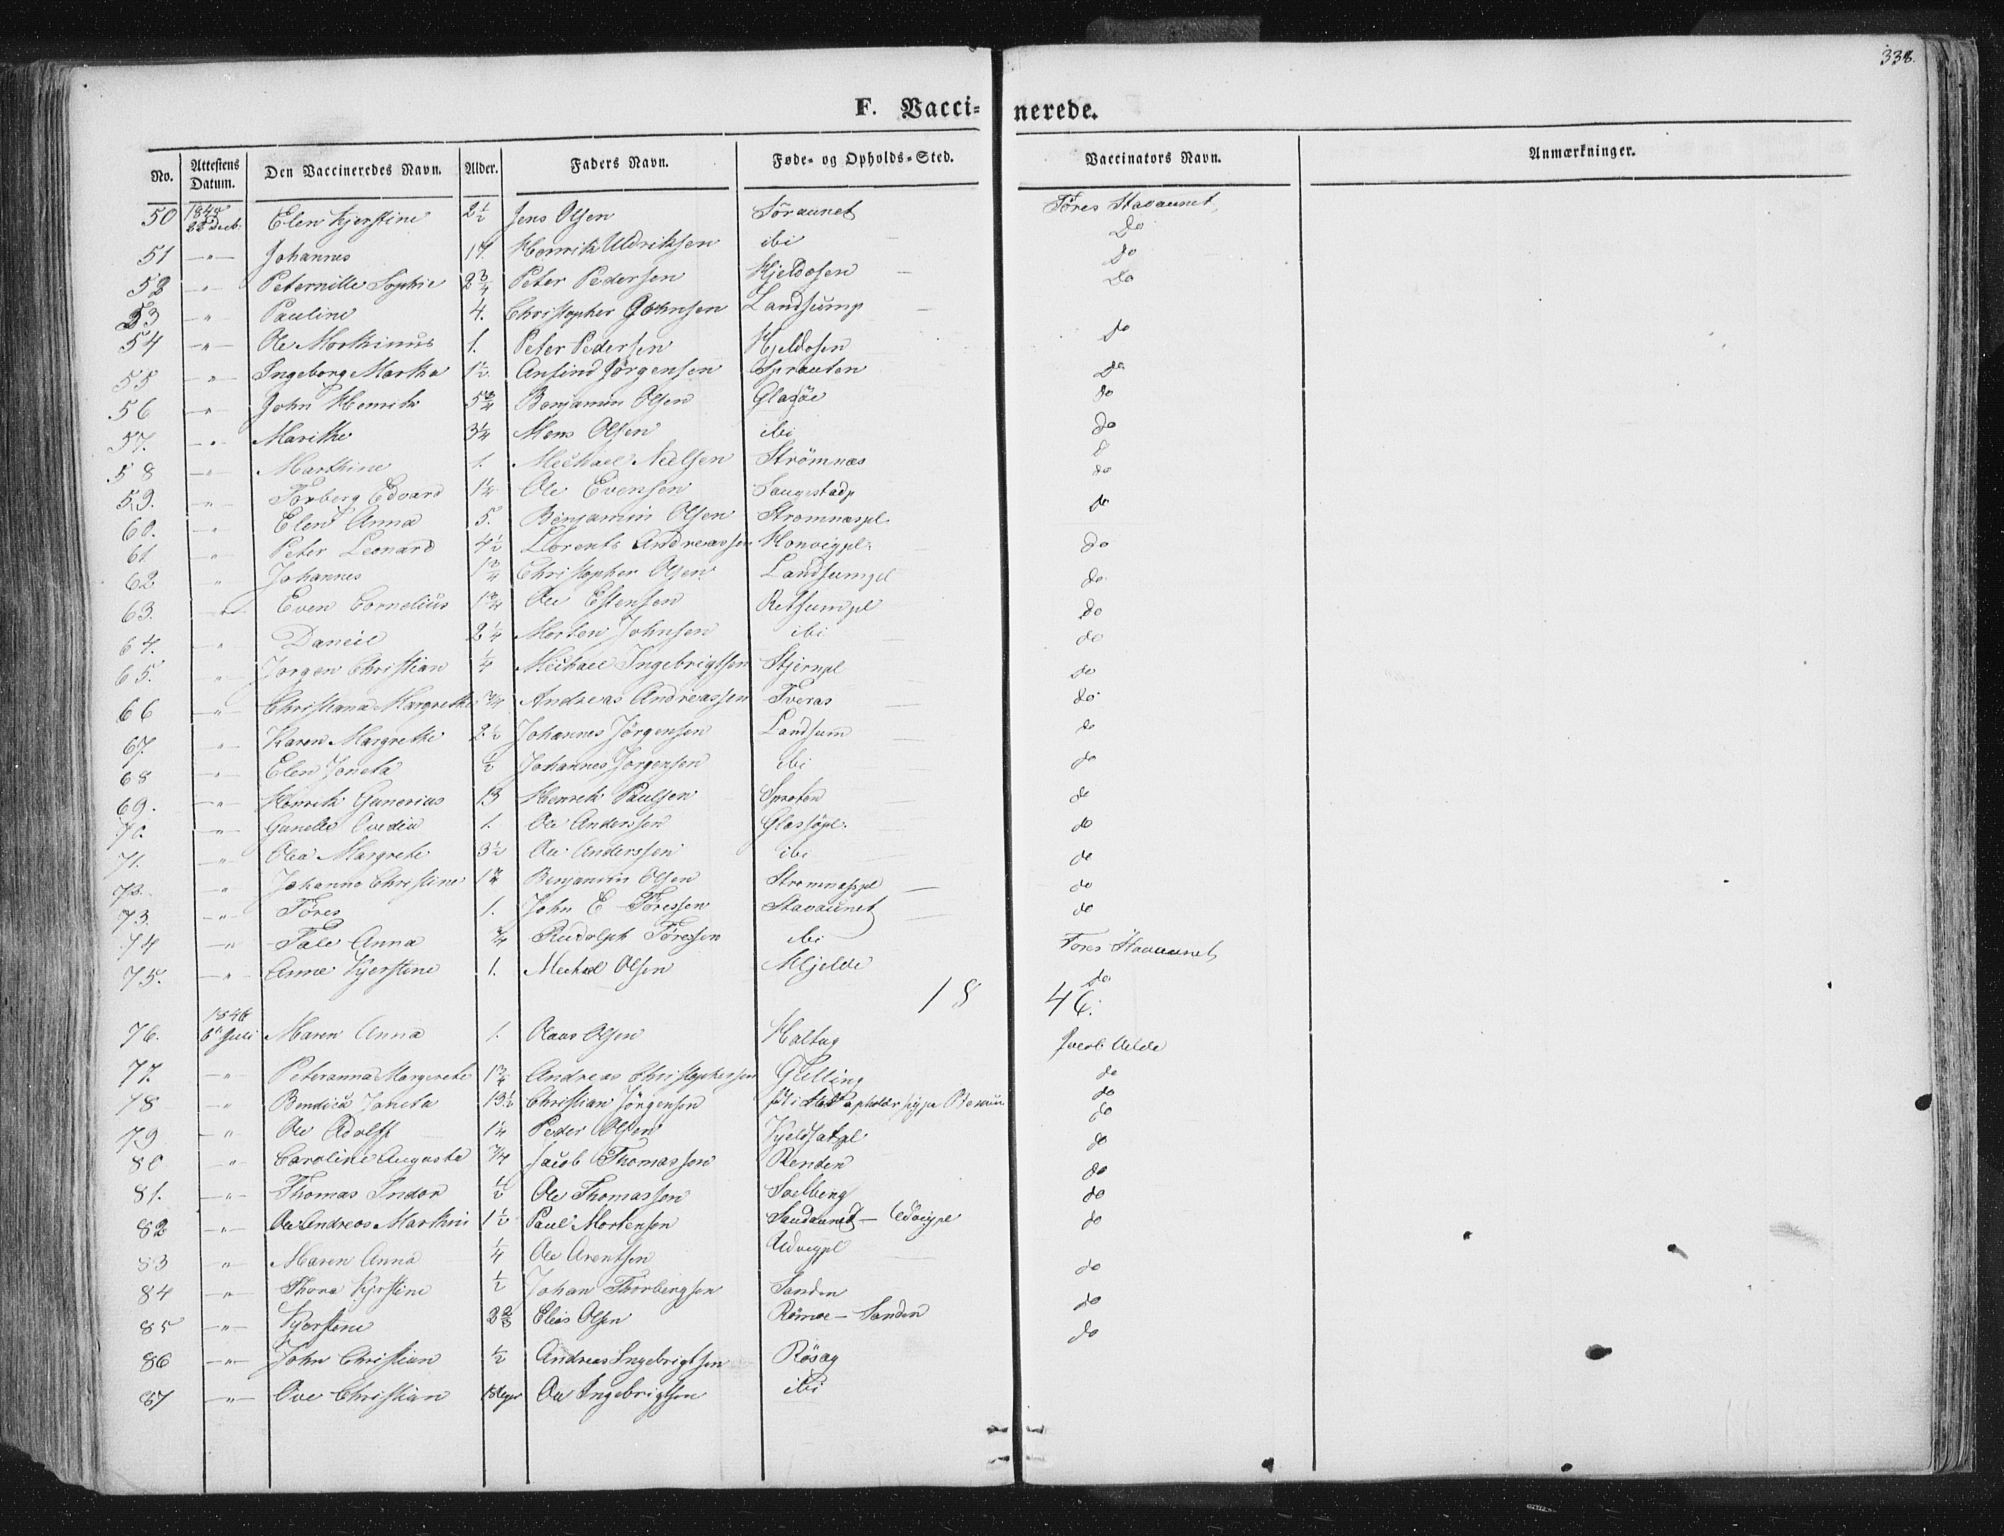 338.
F. Vaccinerede.
No. Attestens Datum. Den Vaccineredes Navn. Alder. Faders Navn. Føde- og Opholds-Sted. Vaccinators Navn. Anmærkninger.
50 1845 22 Decb: Elen Kjerstine 2 1/2 Jens Olsen Søraunet Tøres Stavaunet
51 -"- Johannes 17. Henrik Uldriksen ibi Do
52 " Peternille Sophie 2 3/4 Peter Pedersen Kjeldosen Do
53 " Pauline 4. Christopher Johnsen Landsump Do
54 -"- Ole Marthinus 1. Peter Pedersen Kjeldosen do
55 -"- Ingeborg Martha 1 1/2 Jørgensen Sprauten Do
56 " John Henrik 5 3/4 Benjamin Olsen Glasøe do
57. -"- Marithe 3 1/4 Mons Olsen ibi do
58 " Marthine 1. Michael Nielsen Strømnæs
59. " Torberg Edvard 1 1/4 Ole Evensen do
60. " Elen Anna 5. Benjamin Olsen Stromnæspl. do
61 " Peter Leonard 4 1/2 Lorents Andreassen do
62 " Johannes 1 3/4 Christopher Olsen Landsumpl do
63. " Even Cornelius 1 3/4 Ole Estensen Retsumpl do
64. " Daniel 2 1/4 Morten Johnsen ibi do
65. " Jørgen Christian 1/4 Michael Ingebrigtsen Stjernpl do
66 " Christiana Margrethe 3/4 Andreas Andreassen Tveras do
67. " Karen Margrethe 2 1/2 Johannes Jörgensen Landsum do
68 -"- Elen Joneta 1/2 Johannes Jorgensen ibi do
69. -"- Henrik Gunerius 13 Henrik Paulsen Sproten do
70. " Gunelle Ovedia 1. Ole Anderssen Glassøpl. do
71. " Olea Margrete 3 1/2 Ole Anderssen ibi do
72. " Johanna Christine 1 3/4 Benjamin Olsen Stromnæspl do
73 -"- Töres 1. John E Töressen Stavaunet do
74 " Tale Anna 3/4 Rudolph Töressen ibi Tøres Stavaunet
75. -"- Anne Kjerstine 1. Michel Olsen Mjelde do
18 46.
76. 1846 6te Juli Maren Anna 1. Claus Olsen Haltug Jacob Uelde
77. -"- Peteranna Margrete 1 3/4 Andreas Christophersen Gjelling do
78 " Bendica Joneta 13 1/2 Christian Jörgensen do
79. " Ole Adolff 1 1/4 Peder Olsen Kjeldsatpl do
80 " Caroline Augusta 3/4 Jacob Thomassen Renden do
81. " Thomas Indor 1/2 Ole Thomassen Soelberg do
82 -"- Ole Andreas Marthin 1 1/2 Paul Mortensen Sandaunet — Udvigpl do
83 -"- Maren Anna 1/4 Ole Arentsen Udvigpl do
84 " Thora Kjrstine 1/2 Johan Thorbergsen Sanden do
85 -"- Kjerstine 2 2/3 Elias Olsen Römoe — Sanden do
86 -"- John Christian 1/2 Andreas Ingebrigtsen Røsag do
87 -"- Ove Christian Ole Ingebrigtsen ibi